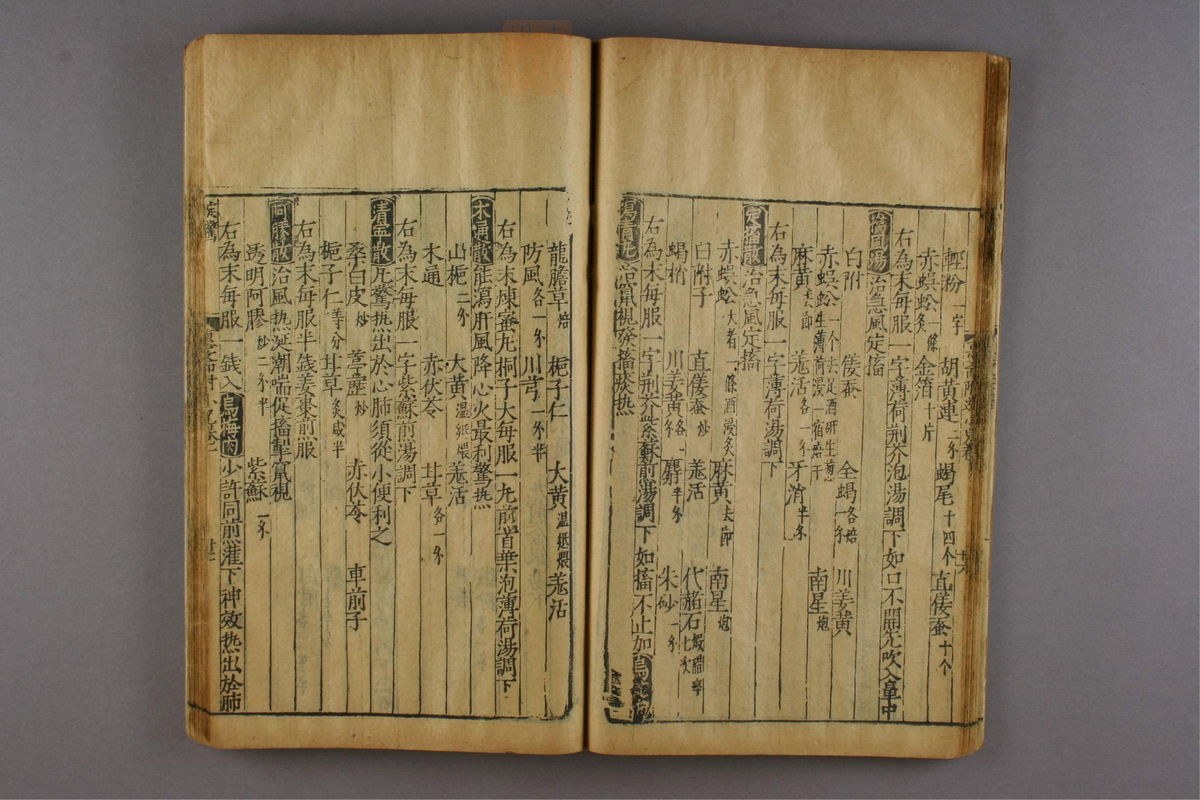 輕粉一字 胡黃連二分 蝎尾十四个 直僵蚕十个
赤蜈蚣炙一條 金箔十片
右為末每服一字薄荷荆芥泡湯調下如口不開先吹入鼻中
治急風定搐
白附 僵蚕 全蝎各一分 川姜黃
赤蜈蚣一个去足酒研 麻黃去節 羗活各一分 牙消半分 南星炮
右為末每服一字薄荷湯調下
定搐散治急風定搐
赤蜈蚣大者一條酒浸炙 麻黃去節 南星炮
白附子 直僵蚕炒 羗活 代赭石七次
蝎梢 川姜黃各一分 麝半分 朱砂一分
右為末每服一字荆芥紫蘇煎湯調下如搐不止加烏
瀉青丸治竄視發搐痰热
龍膽草焙 梔子仁 大黃温紙煨 羗活
防風各一分 川芎一分半
右為末煉蜜丸桐子大每服一丸前葉泡薄荷湯調下
木通散能瀉肝風降心火最利驚热
山梔二分 大黃温紙煨 羗活
木通 赤伏苓 甘草各一分
右為末每服一字紫蘇煎湯調下
清寧散凡驚热出於心肺須從小便利之
桒白皮炒 葶藶炒 赤伏苓 車前子
梔子仁等分 甘草炙咸半
右為末每服半錢姜棗煎服
阿膠散治風热涎潮喘促搐掣竄視
透明阿膠炒二分半 紫蘇一分
右為末每服一錢入烏梅肉少許同煎灌下神效热出於肺
定驚